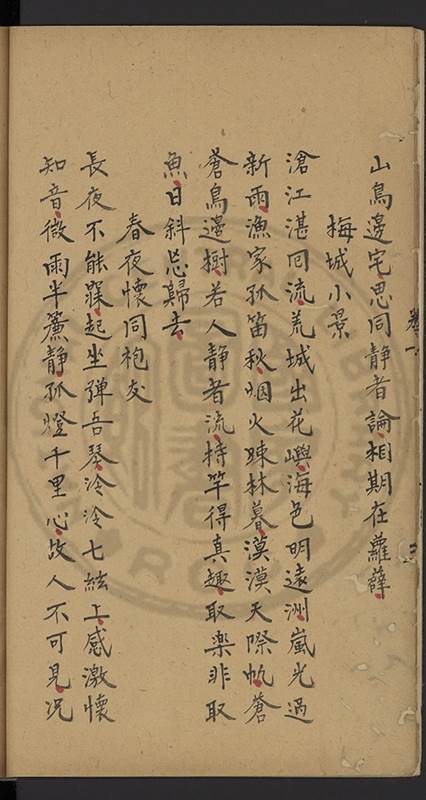 山鳥邊宅思同靜者論相期在蘿薜
梅城小景
滄江湛回流荒城出花嶼海色明遠洲嵐光過
新雨漁家孤笛秋烟火踈林暮漠漠天際帆蒼
蒼鳥邊樹若人靜者流持竿得真趣取樂非取
魚日斜忘歸去
春夜懷同袍友
長夜不能寐起坐彈吾琴泠泠七絃上感激懷
知音微雨半簾靜孤燈千里心故人不可見況